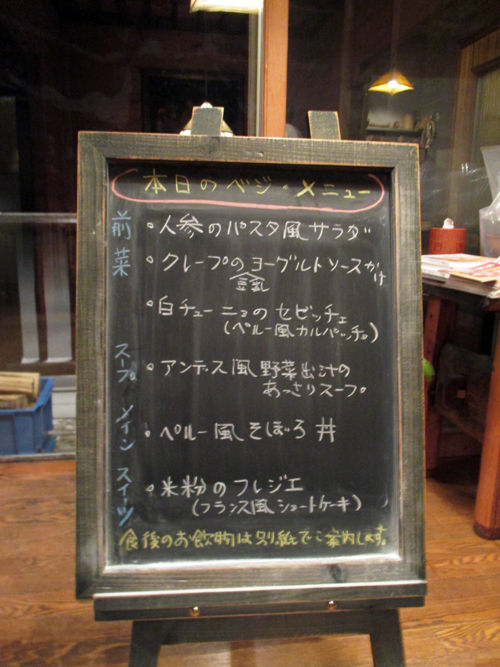 本日のベジ・メニュー
前菜
・人参のパスタ風サラダ
・クレープのヨーグルトソースかけ
豆乳
・白チューニョのセビッチェ
(ペルー風カルパッチョ)
スープ
・アンデス風野菜出汁の
あっさりスープ
メイン
・ペルー風そぼろ丼
スイーツ
・米粉のフレジエ
(フランス風ショートケーキ)
食後のお飲物は別紙でご案内します。